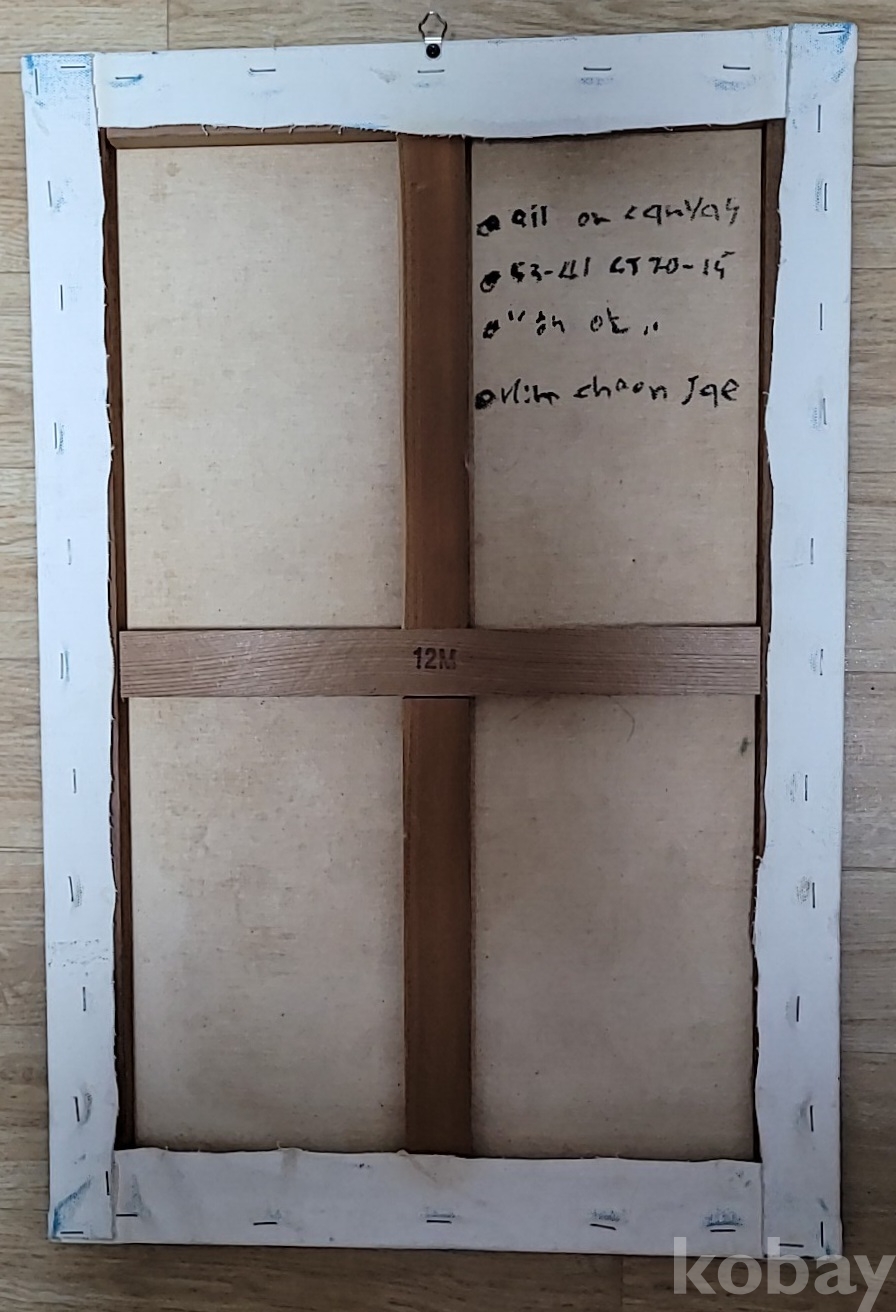 oil on canvas
53-41 GT70-15
"on ok"
chaon Jae
12M
kobay